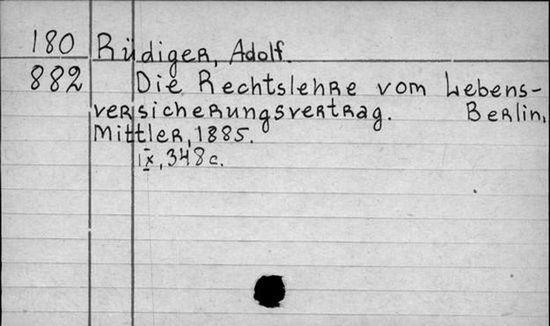 180 Rüdiger, Adolf.
882 Die Rechtslehre vom Lebens-
versicherungsvertrag. Berlin,
Mittler, 1885.
IX, 348 c.